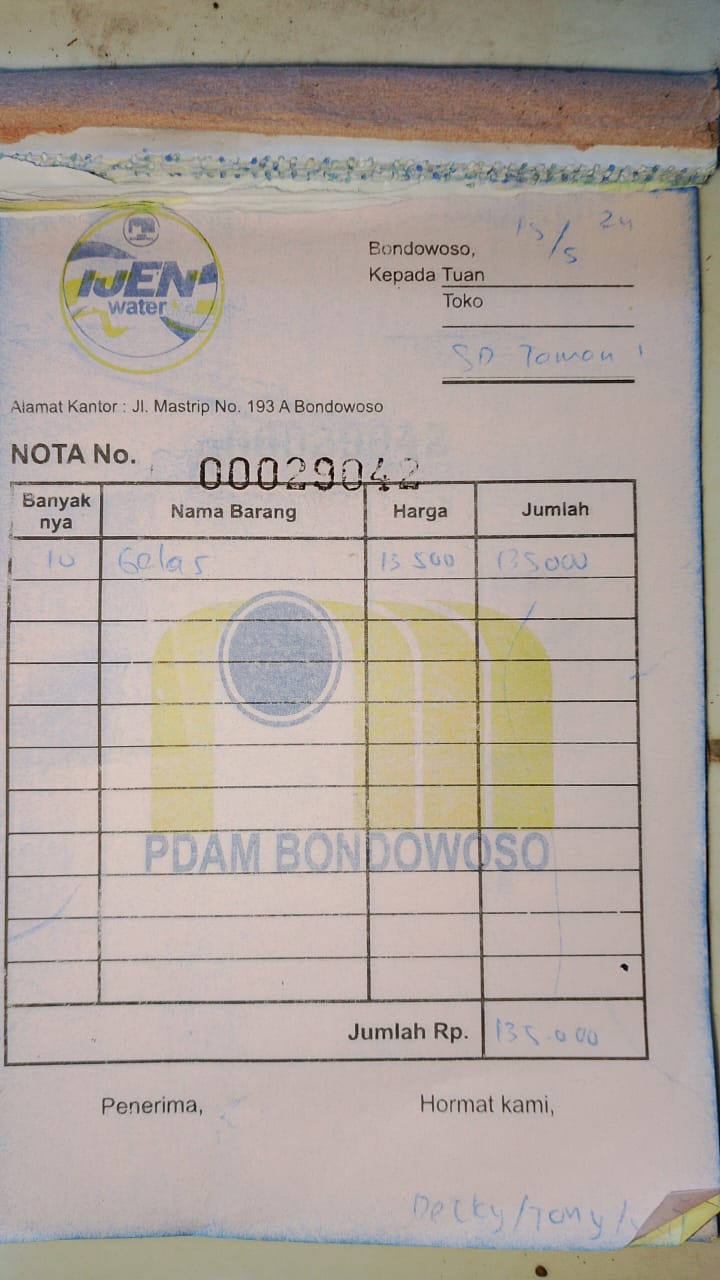 IJEN
water
15/5 24
Bondowoso,
Kepada Tuan
Toko
SD Taman 1
Alamat Kantor : Jl. Mastrip No. 193 A Bondowoso
NOTA No. 00029042
Banyak nya Nama Barang Harga Jumlah
10 Gelas 13 500 135000
PDAM BONDOWOSO
Jumlah Rp. 135.000
Penerima, Hormat kami,
Decky/Tomy/